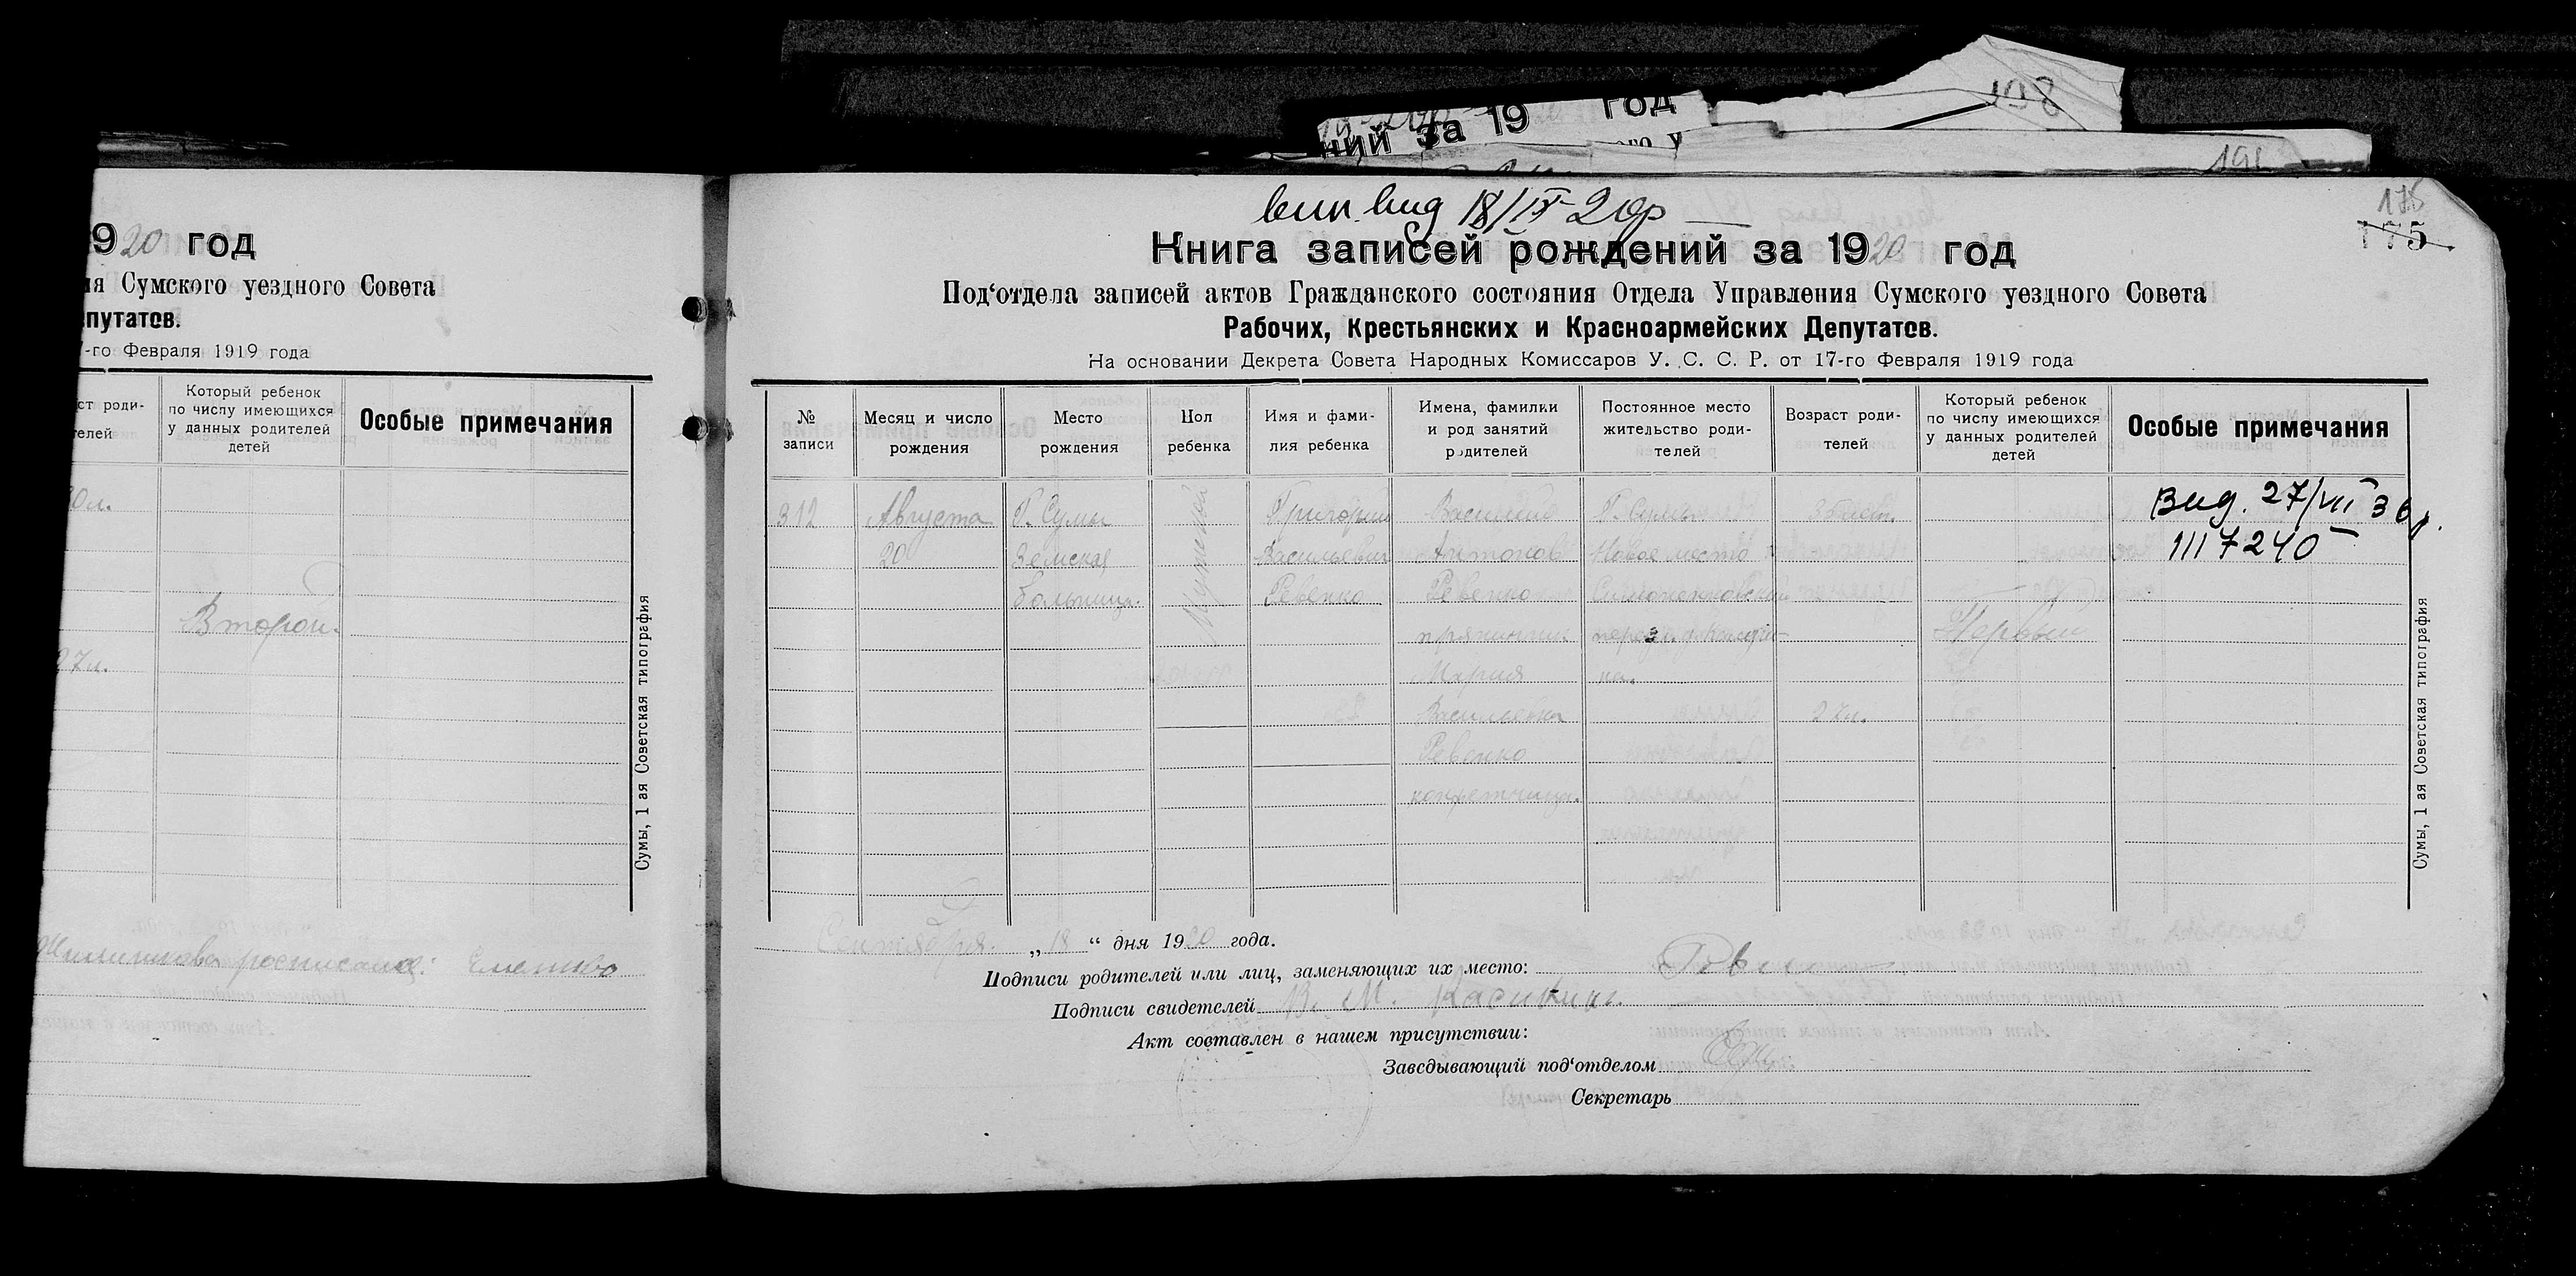 ний за 19 год
198
1920 год
ия Сумского уездного Совета
епутатов.
-го Февраля 1919 года
ст роди-
телей
Который ребенок
по числу имеющихся
у данных родителей
детей
Особые примечания
0л.
Второй.
27л.
расписалась:
Сумы, 1 ая Советская типография
вып. вид 18/IX-20р
175
175
Книга записей рождений за 1920 год
Под‘отдела записей актов Гражданского состояния Отдела Управления Сумского уездного Совета
Рабочих, Крестьянских и Красноармейских Депутатов.
На основании Декрета Совета Народных Комиссаров У. С. С. Р. от 17-го Февраля 1919 года
№
записи
Месяц и число
рождения
Место
рождения
Пол
ребенка
Имя и фами-
лия ребенка
Имена, фамилии
и род занятий
родителей
Постоянное место
жительство роди-
телей
Возраст роди-
телей
Который ребенок
по числу имеющихся
у данных родителей
детей
Особые примечания
312
Августа
20
Г. Сумы
Земская
больница.
Мужской
Григорий
Васильевич
Ревенко
Василий
Антонов
Ревенко
Мария
Васильевна
Ревенко
Г. Сумы
Новое место
на.
27л.
Первый
Вид. 27/VII 36р.
1117240
Сумы, 1 ая Советская типография
Сентября. „18“ дня 1920 года.
Подписи родителей или лиц, заменяющих их место:
Подписи свидетелей В. М.
Акт составлен в нашем присутствии:
Заведывающий под‘отделом
Секретарь